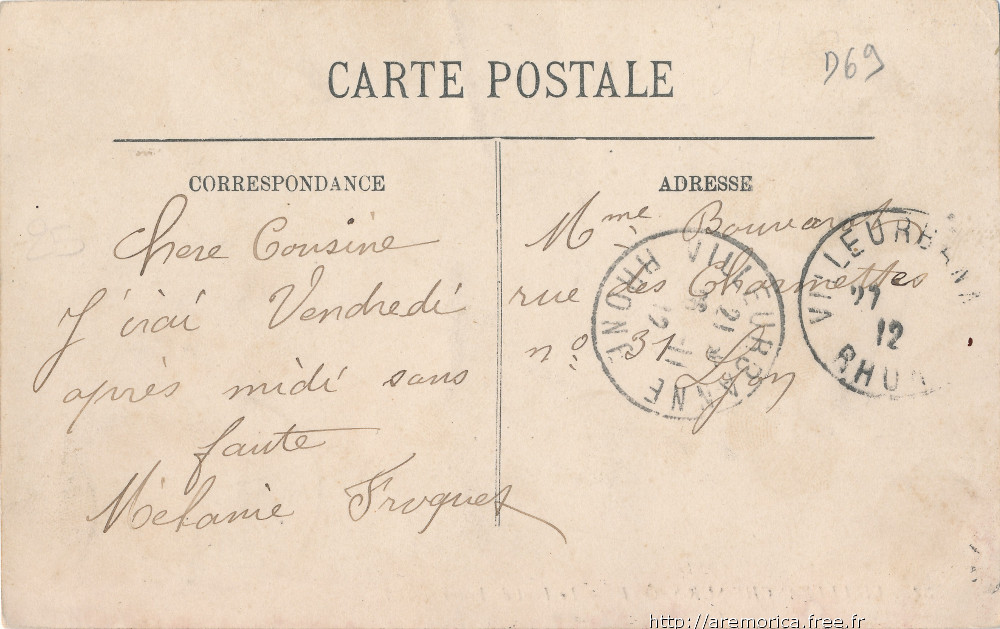 CARTE POSTALE
D69
CORRESPONDANCE
Chere Cousine
J'irai Vendredi
après midi sans
faute
Mélanie Froquet
ADRESSE
Mme Bouvard
rue des Charmettes
no 31 Lyon
VILLEURBANNE
21
12 -11
RHONE
VILLEURBANN
21
12
RHO
http://aremorica.free.fr